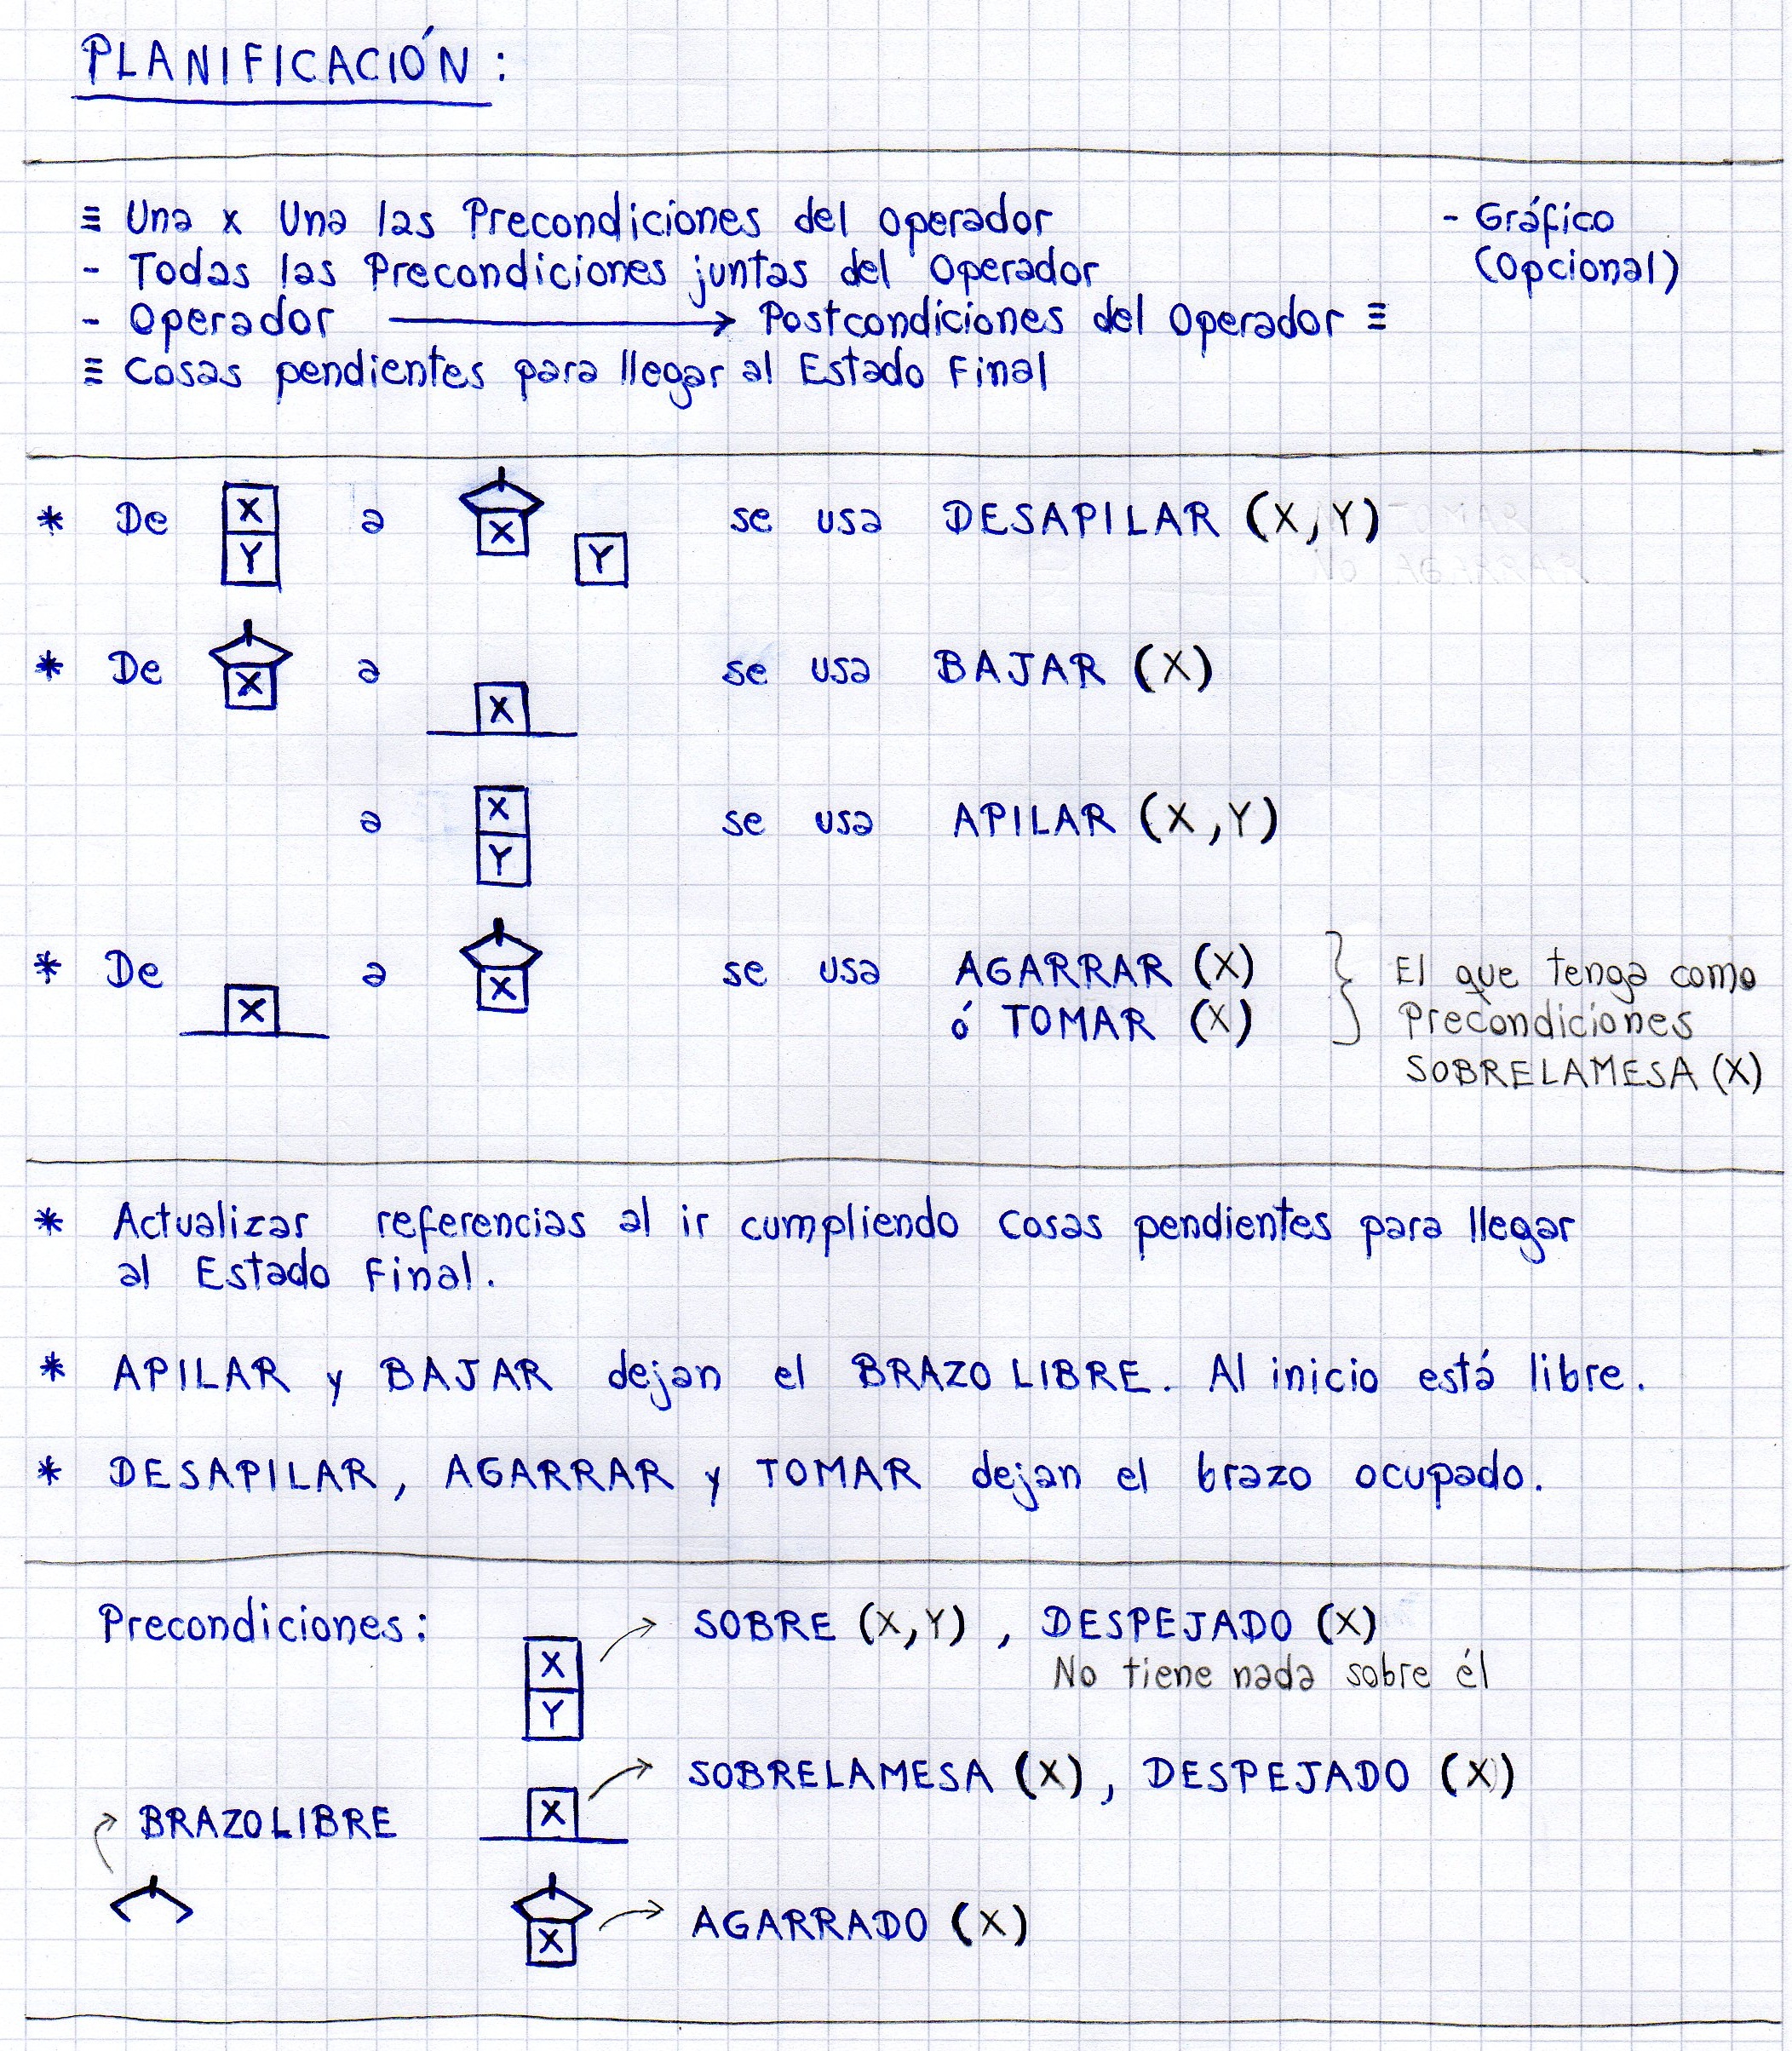 PLANIFICACIÓN :
≡ Una x Una las Precondiciones del Operador - Gráfico
- Todas las Precondiciones juntas del Operador (Opcional)
- Operador → Postcondiciones del Operador ≡
≡ Cosas pendientes para llegar al Estado Final
* De X Y a X Y se usa DESAPILAR (X,Y)
* De X a X se usa BAJAR (X)
a X Y se usa APILAR (X,Y)
* De X a X se usa AGARRAR (X) } El que tenga como
ó TOMAR (X) Precondiciones
SOBRELAMESA (X)
* Actualizar referencias al ir cumpliendo Cosas pendientes para llegar
al Estado Final.
* APILAR y BAJAR dejan el BRAZO LIBRE. Al inicio está libre.
* DESAPILAR, AGARRAR y TOMAR dejan el brazo ocupado.
Precondiciones: X Y → SOBRE (X,Y) , DESPEJADO (X)
No tiene nada sobre él
X → SOBRELAMESA (X), DESPEJADO (X)
BRAZO LIBRE
X → AGARRADO (X)